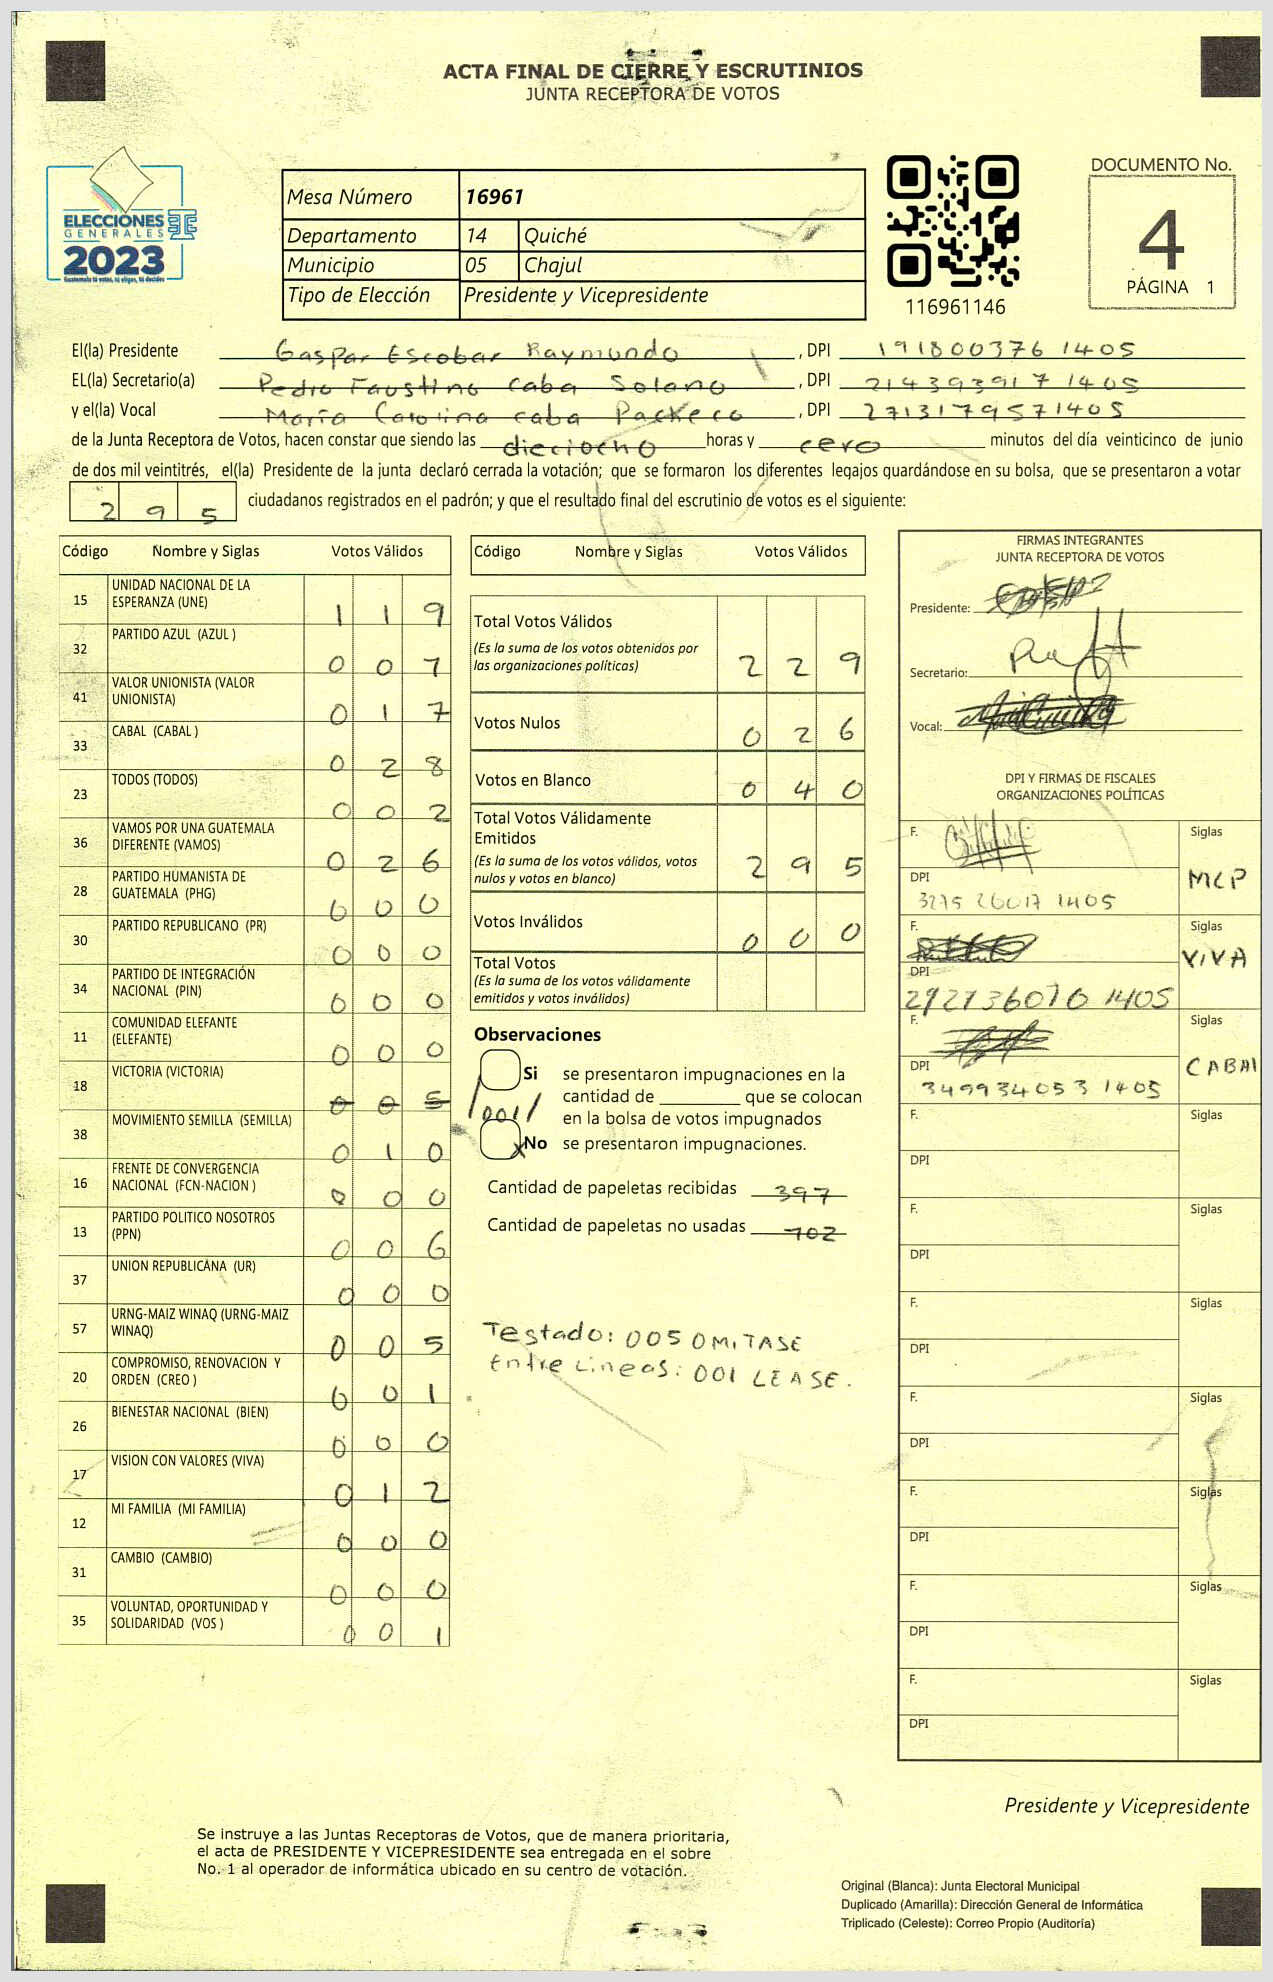 ACTA FINAL DE CIERRE Y ESCRUTINIOS
JUNTA RECEPTORA DE VOTOS
ELECCIONES
GENERALES
2023
Guatemala tú votas, tú eliges, tú decides
Mesa Número 16961
Departamento 14 Quiché
Municipio 05 Chajul
Tipo de Elección Presidente y Vicepresidente
116961146
DOCUMENTO No.
4
PÁGINA 1
El(la) Presidente Gaspar Escobar Raymundo , DPI 191800376 1405
EL(la) Secretario(a) Pedro Faustino caba Solano , DPI 214393917 1405
y el(la) Vocal María Carolina caba Pacheco , DPI 2713179571405
de la Junta Receptora de Votos, hacen constar que siendo las dieciocho horas y cero minutos del día veinticinco de junio
de dos mil veintitrés, el(la) Presidente de la junta declaró cerrada la votación; que se formaron los diferentes legajos guardándose en su bolsa, que se presentaron a votar
295 ciudadanos registrados en el padrón; y que el resultado final del escrutinio de votos es el siguiente:
Código Nombre y Siglas Votos Válidos
15 UNIDAD NACIONAL DE LA ESPERANZA (UNE) 1 1 9
32 PARTIDO AZUL (AZUL ) 0 0 7
41 VALOR UNIONISTA (VALOR UNIONISTA) 0 1 7
33 CABAL (CABAL ) 0 2 8
23 TODOS (TODOS) 0 0 2
36 VAMOS POR UNA GUATEMALA DIFERENTE (VAMOS) 0 2 6
28 PARTIDO HUMANISTA DE GUATEMALA (PHG) 0 0 0
30 PARTIDO REPUBLICANO (PR) 0 0 0
34 PARTIDO DE INTEGRACIÓN NACIONAL (PIN) 0 0 0
11 COMUNIDAD ELEFANTE (ELEFANTE) 0 0 0
18 VICTORIA (VICTORIA) 0 0 5
38 MOVIMIENTO SEMILLA (SEMILLA) 0 1 0
16 FRENTE DE CONVERGENCIA NACIONAL (FCN-NACION ) 0 0 0
13 PARTIDO POLITICO NOSOTROS (PPN) 0 0 6
37 UNION REPUBLICANA (UR) 0 0 0
57 URNG-MAIZ WINAQ (URNG-MAIZ WINAQ) 0 0 5
20 COMPROMISO, RENOVACION Y ORDEN (CREO ) 0 0 1
26 BIENESTAR NACIONAL (BIEN) 0 0 0
17 VISION CON VALORES (VIVA) 0 1 2
12 MI FAMILIA (MI FAMILIA) 0 0 0
31 CAMBIO (CAMBIO) 0 0 0
35 VOLUNTAD, OPORTUNIDAD Y SOLIDARIDAD (VOS ) 0 0 1
Código Nombre y Siglas Votos Válidos
Total Votos Válidos
(Es la suma de los votos obtenidos por
las organizaciones políticas) 2 2 9
Votos Nulos 0 2 6
Votos en Blanco 0 4 0
Total Votos Válidamente
Emitidos
(Es la suma de los votos válidos, votos
nulos y votos en blanco) 2 9 5
Votos Inválidos 0 0 0
Total Votos
(Es la suma de los votos válidamente
emitidos y votos inválidos)
Observaciones
Si se presentaron impugnaciones en la
cantidad de ________ que se colocan
/001/ en la bolsa de votos impugnados
x No se presentaron impugnaciones.
Cantidad de papeletas recibidas 397
Cantidad de papeletas no usadas 102
Testado: 005 OMITASE
Entre Lineas: 001 LEASE.
FIRMAS INTEGRANTES
JUNTA RECEPTORA DE VOTOS
Presidente:
Secretario:
Vocal:
DPI Y FIRMAS DE FISCALES
ORGANIZACIONES POLÍTICAS
F. Siglas
DPI MLP
3275 26017 1405
F. Siglas
DPI VIVA
292736070 1405
F. Siglas
DPI CABAl
349934053 1405
F. Siglas
DPI
F. Siglas
DPI
F. Siglas
DPI
F. Siglas
DPI
F. Siglas
DPI
F. Siglas
DPI
F. Siglas
DPI
Presidente y Vicepresidente
Se instruye a las Juntas Receptoras de Votos, que de manera prioritaria,
el acta de PRESIDENTE Y VICEPRESIDENTE sea entregada en el sobre
No. 1 al operador de informática ubicado en su centro de votación.
Original (Blanca): Junta Electoral Municipal
Duplicado (Amarilla): Dirección General de Informática
Triplicado (Celeste): Correo Propio (Auditoría)